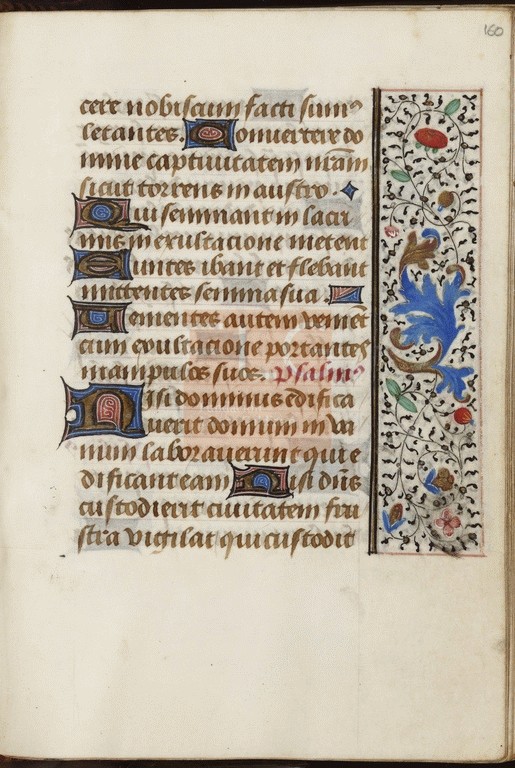 160
cere nobiscum facti sumꝰ
letantes. Conuertere do
mine captiuitatem nr̄am
sicut torrens in austro.
Qui seminant in lacri
mis in exultacione metent
Euntes ibant et flebant
mittentes semina sua.
Uenientes autem venient
cum exultacione portantes
manipulos suos. Psalmꝰ
Nisi dominus edifica
uerit domum in va
num laborauerunt qui e
dificant eam Nisi dn̄s
custodierit ciuitatem fru
stra vigilat qui custodit